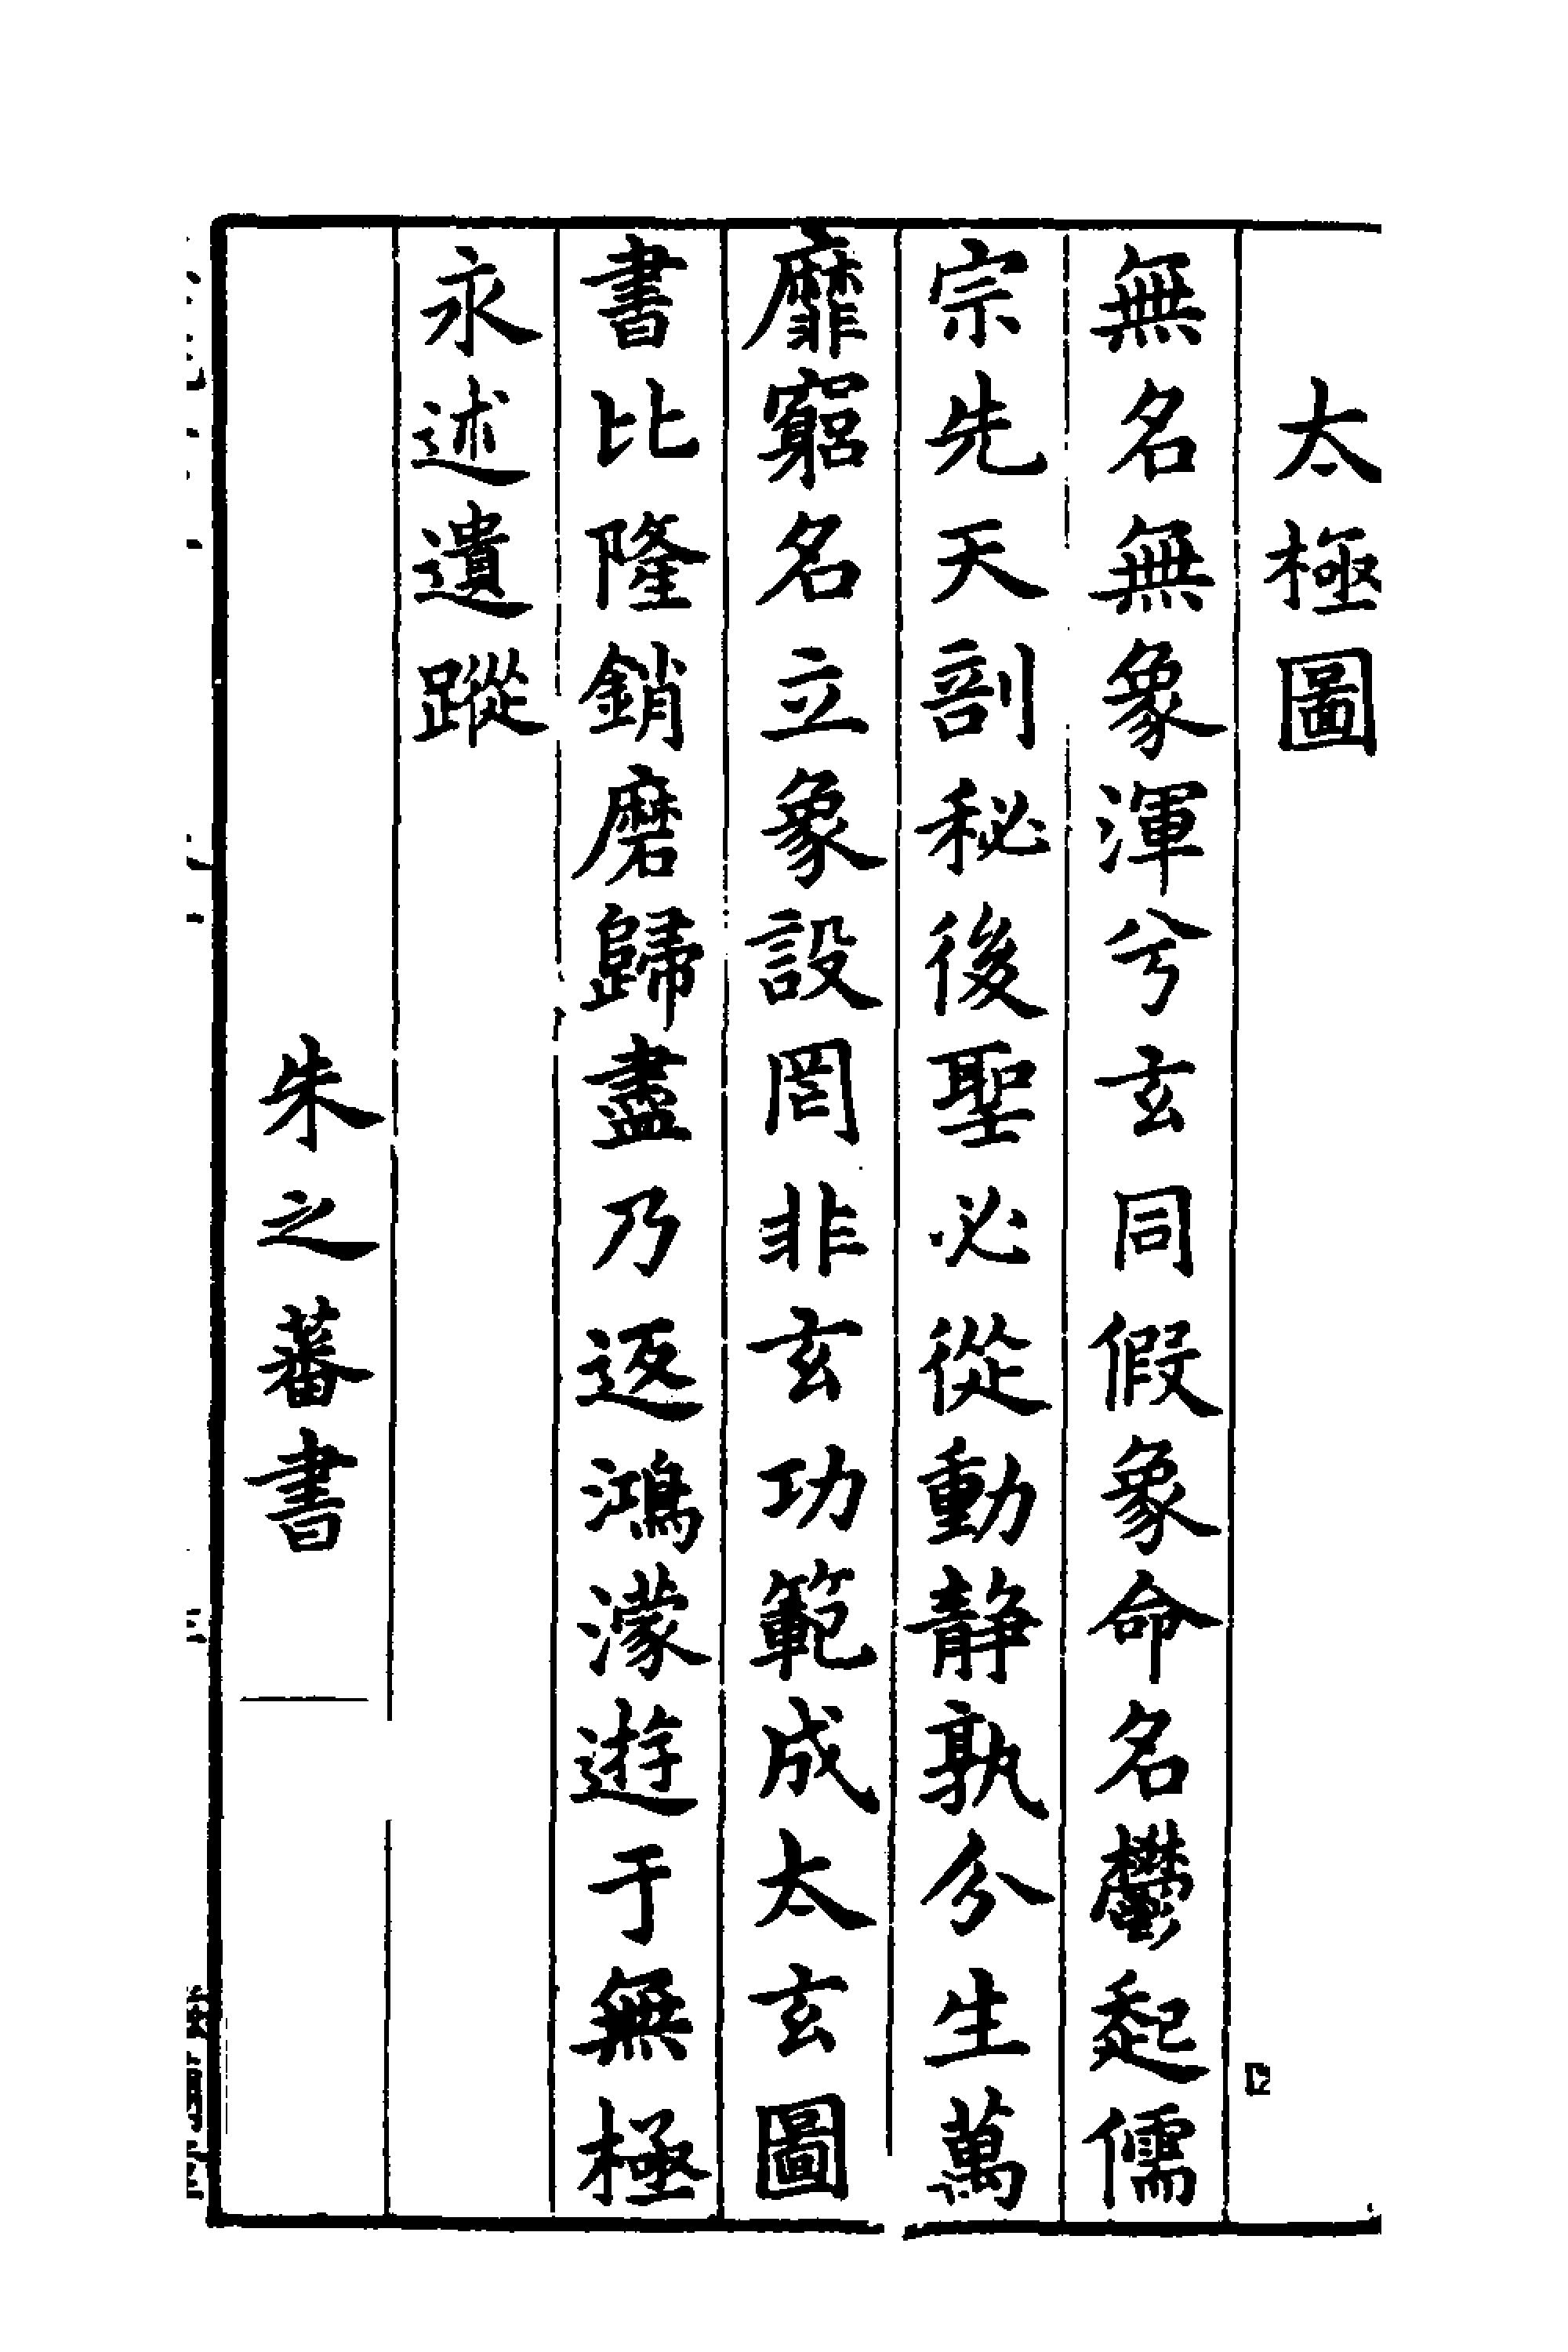 太極圖
無名無象渾兮玄同假象命名鬱起儒
宗先天剖秘後聖必從動靜孰分生萬
靡窮名立象設罔非玄功範成太玄圖
書比隆銷磨歸盡乃返鴻濛遊于無極
永述遺蹤
朱之蕃書